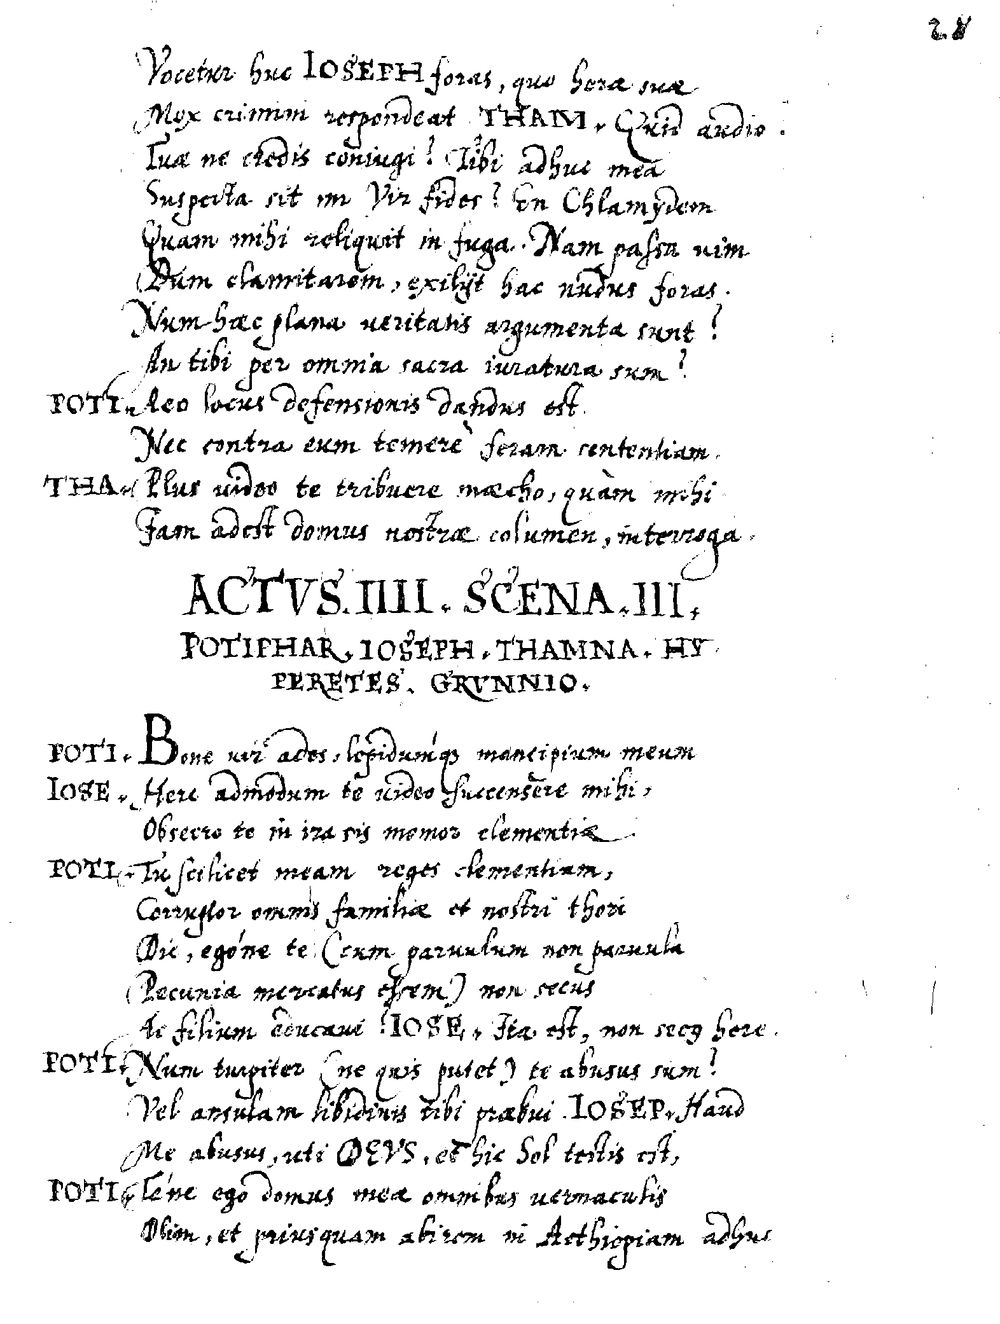 28
Vocetur huc IOSEPH foras, quo heræ suæ
Mox crimini respondeat THAM. Quid audio?
Tuæ ne credis coniugi? Tibi adhuc mea
Suspecta sit mi Vir fides? En Chlamydem
Quam mihi reliquit in fuga. Nam passa uim
Dum clamitarem, exilijt hac nudus foras.
Num hæc plana ueritatis argumenta sunt?
An tibi per omnia sacra iuratura sum?
POTI. Reo locus defensionis dandus est.
Nec contra eum temere feram sententiam.
THA. Plus uideo te tribuere mæcho, quàm mihi
Iam adest domus nostræ columen, interroga.
ACTVS. IIII. SCENA. III.
POTIPHAR, IOSEPH. THAMNA. HY
PERETES. GRVNNIO.
POTI. Bone uir ades, lepidumq́; mancipium meum
IOSE. Here admodum te uideo succensere mihi,
Obsecro te in ira sis memor clementiæ.
POTI. Tu scilicet meam roges clementiam,
Corruptor omnis familiæ et nostri thori
Dic, egóne te (cum paruulum non paruula
(Pecunia mercatus essem) non secus
Ac filium educaui? IOSE. Ita est, non secꝰ here.
POTI. Num turpiter (ne quis putet) te abusus sum?
Vel ansulam libidinis tibi præbui. IOSEP. Haud
Me abusus, uti DEVS, et hic Sol testis est,
POTI. Téne ego domus meæ omnibus uernaculis
Olim, et priusquam abirem in Aethiopiam adhuc